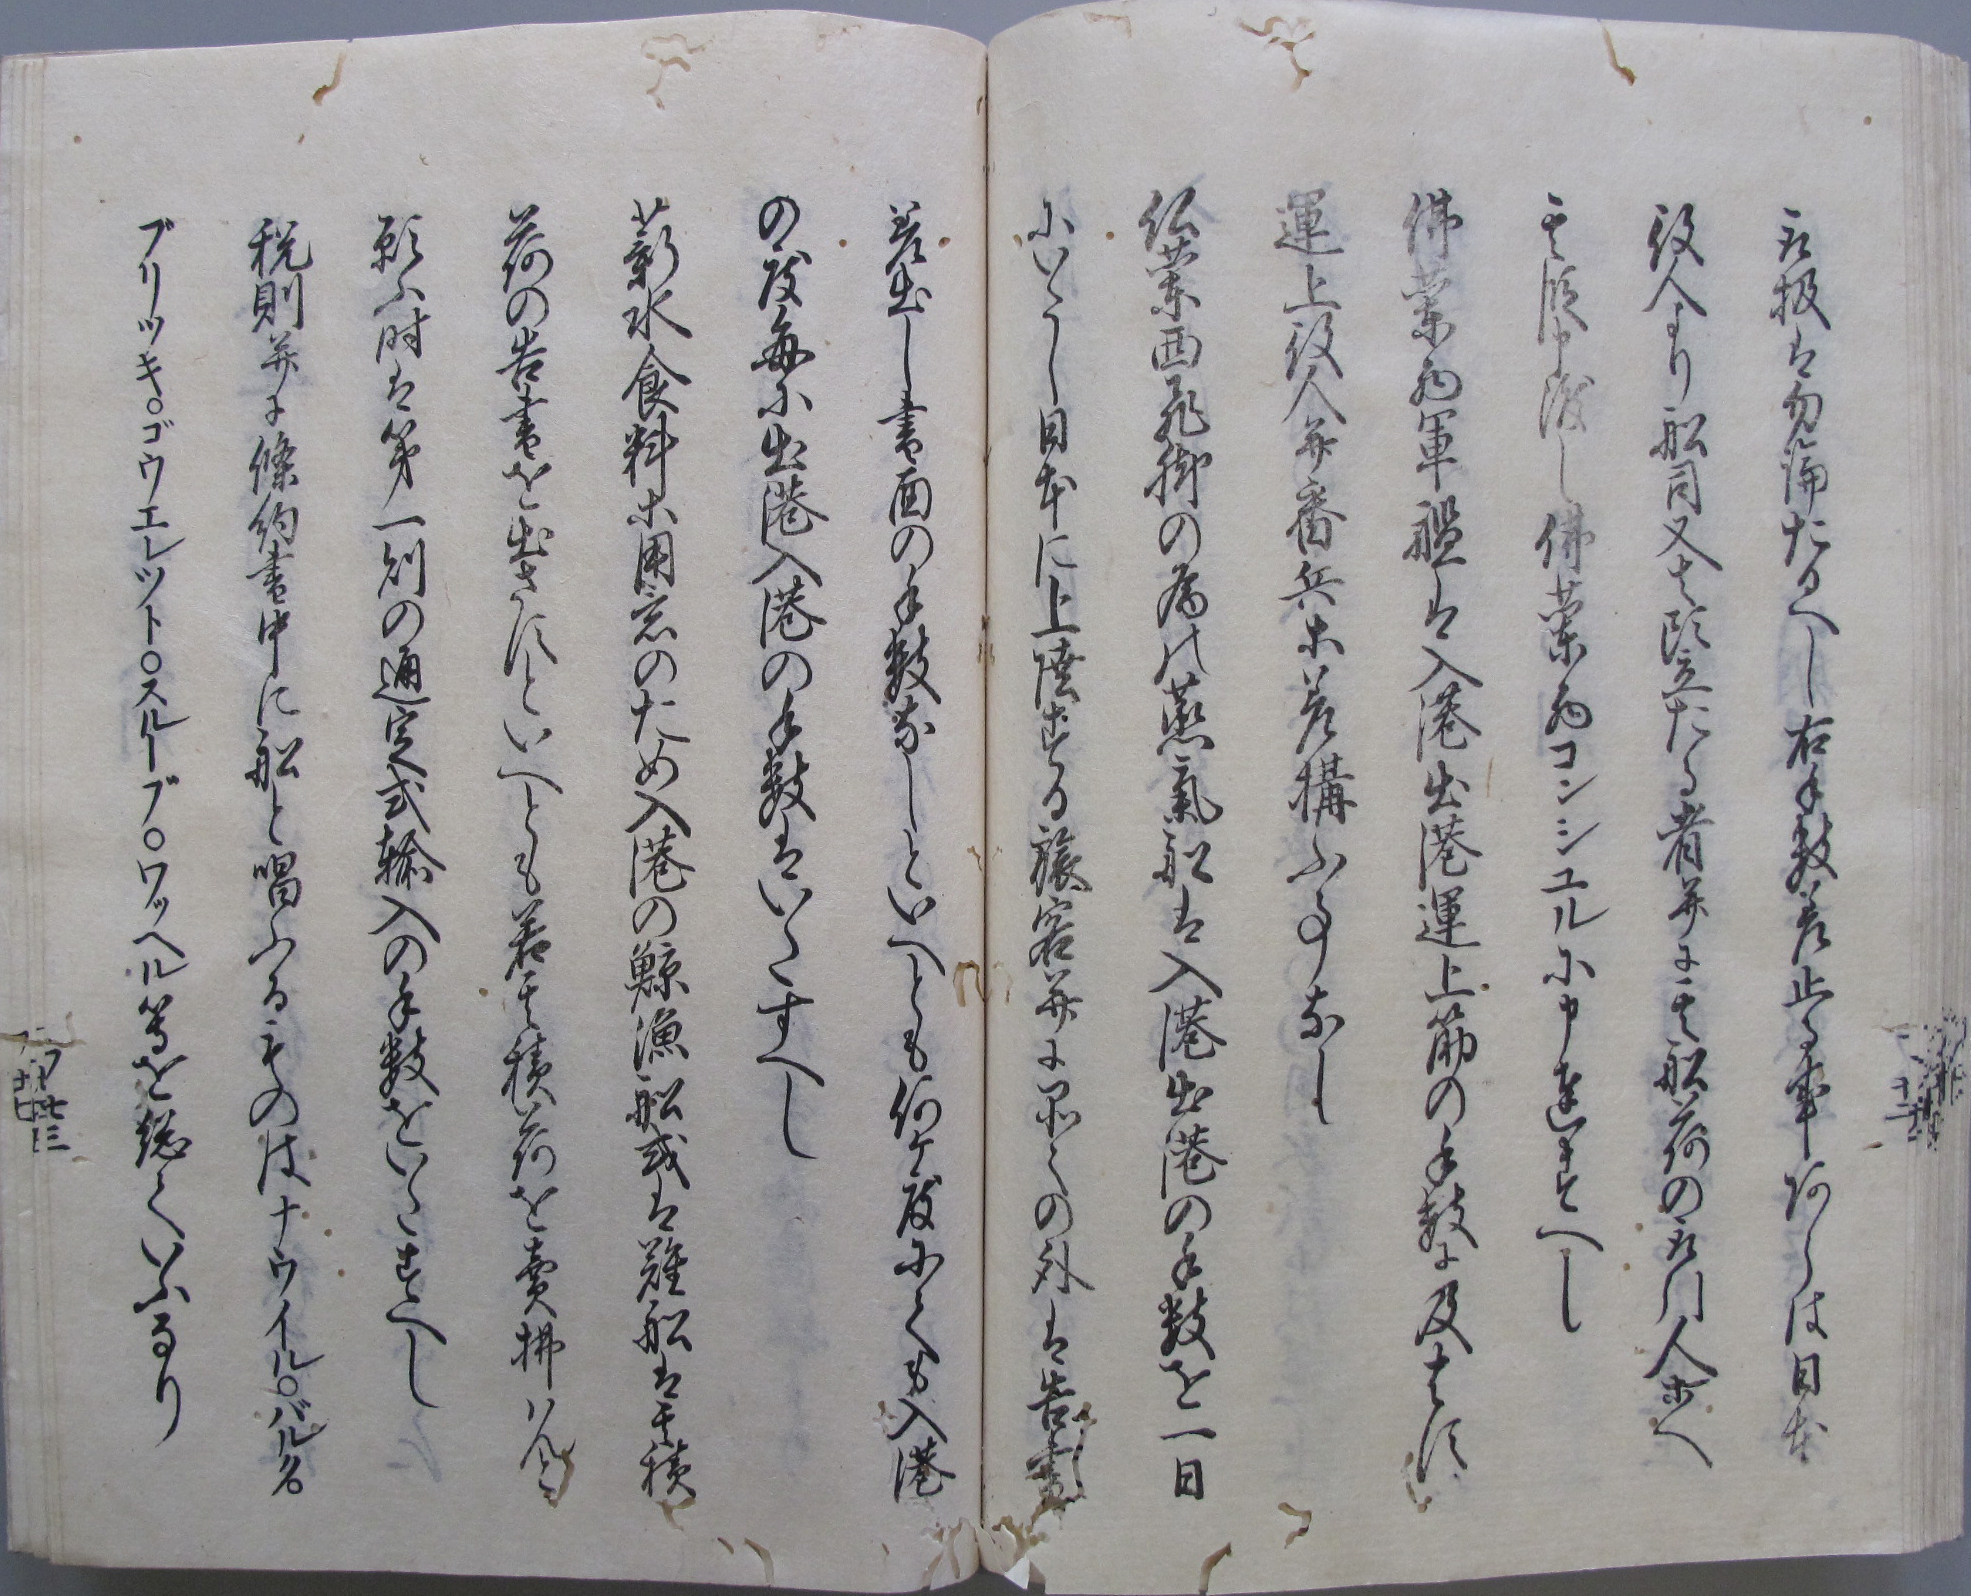 取扱は勿論たるへし右手数差止る事あらは日本
役人より船司又は頭立たる者并に其船荷の取引人等へ
其段申渡し佛蘭西コンシュルに申達すへし
佛蘭西軍艦は入港出港運上筋の手数に及はす
運上役人并番兵等差構ふ事なし
仏蘭西飛脚の為の蒸氣船は入港出港の手数を一日
にいたし日本に上陸する旅客并に品々の外は告書
差出し書面の手数なしといへとも何ケ度にても入港
の度毎に出港入港の手数はいたすへし
薪水食料等用意のため入港の鯨漁船或は難船は其積
荷の告書を出さすといへとも若其積荷を賣拂はんと
願ふ时は第一則の通定式輸入の手数をいたすへし
税則并に條約書中に船と唱ふるものはナウイル○バルク○
ブリッキ○ゴウエレツト○スループ○ワッヘル等を総ていふなり